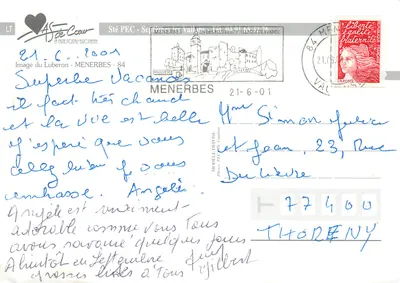 As de Coeur
LT
Sté PEC - Sep
Image du Luberon - MENERBES - 84
21.6.2001
Superbe vacances
il fait très chaud
et la vie est belle
J'espère que vous
allez bien je vous
embrasse. Angèle
Angèle est vraiment
adorable comme vous tous
avons savouré quelques jours
A bientôt en Septembre
grosses bises à tous
Gilbert
MENERBES
21-6-01
84 MEN
VAU
Liberté
égalité
fraternité
Mme Simon
et Jean, 23, Rue
Du Lièvre
77400
THORIGNY